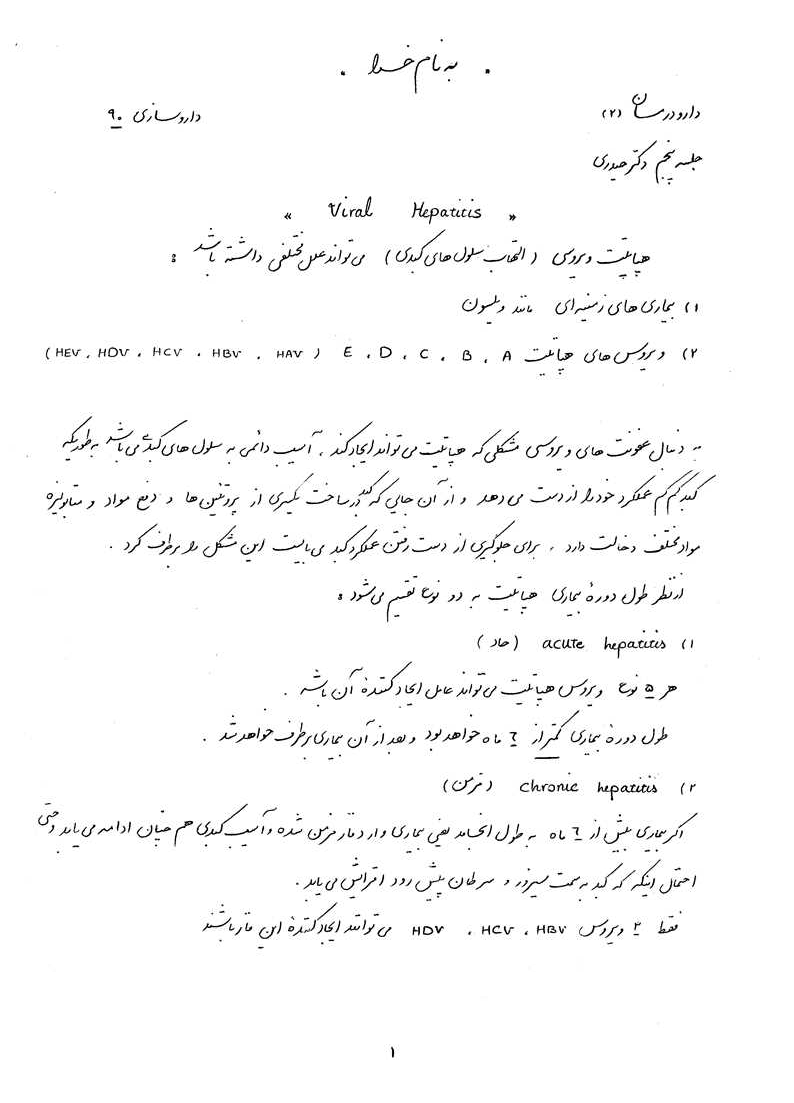 . به نام خدا .
دارو درمان (۲)
داروسازی ۹۰
جلسه پنجم دکتر حیدری
« Viral Hepatitis »
هپاتیت ویروسی (التهاب سلول های کبدی) می تواند علل مختلفی داشته باشد :
۱) بیماری های زمینه ای مانند ویلسون
۲) ویروس های هپاتیت A ، B ، C ، D ، E (HAV ، HBV ، HCV ، HDV ، HEV)
به دنبال عفونت های ویروسی مشکلی که هپاتیت می تواند ایجاد کند ، آسیب دائمی به سلول های کبدی می باشد به طوریکه
کبد کم کم عملکرد خود را از دست می دهد و از آن جایی که کبد در ساخت یکسری از پروتئین ها و دفع مواد و متابولیزه
مواد مختلف دخالت دارد ، برای جلوگیری از دست رفتن عملکرد کبد می بایست این مشکل را برطرف کرد .
از نظر طول دورۀ بیماری هپاتیت به دو نوع تقسیم می شود :
۱) acute hepatitis (حاد)
هر ۵ نوع ویروس هپاتیت می تواند عامل ایجاد کنندۀ آن باشد .
طول دورۀ بیماری کمتر از ٦ ماه خواهد بود و بعد از آن بیماری برطرف خواهد شد .
۲) chronic hepatitis (مزمن)
اگر بیماری بیش از ٦ ماه به طول انجامد یعنی بیماری وارد فاز مزمن شده و آسیب کبدی هم چنان ادامه می یابد و حتی
احتمال اینکه که کبد به سمت سیروز و سرطان پیش رود افزایش می یابد .
فقط ۳ ویروس HBV ، HCV ، HDV می توانند ایجاد کنندۀ این فاز باشند
۱